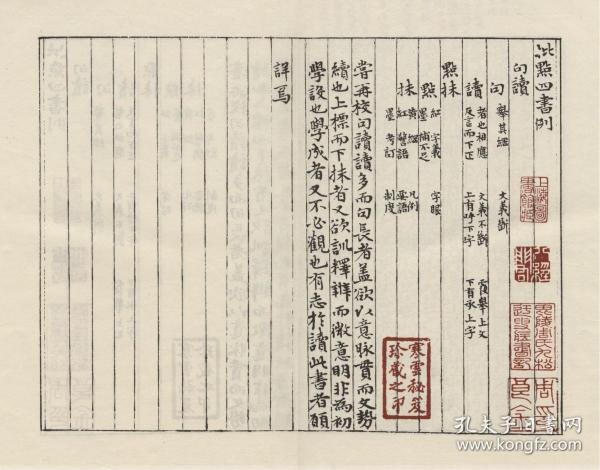 批點四書例
句讀
句 舉其綱 文義斷
讀 者也相應 文義不斷 覆舉上文
反言而下正 上有呼下字 下有承上字
點抹
點 紅 字義 字眼
墨 補不足
抹 黃 綱 凡例
紅 警語 要語
墨 考訂 制度
嘗再校句讀讀多而句長者蓋欲以意脉貫而文勢
續也上標而下抹者又欲訓釋辨而微意明非為初
學設也學成者又不必觀也有志於讀此書者願
詳焉
寒雲秘笈
珍藏之印
上海圖
書館藏
孔夫子旧书网
www.kongfz.com